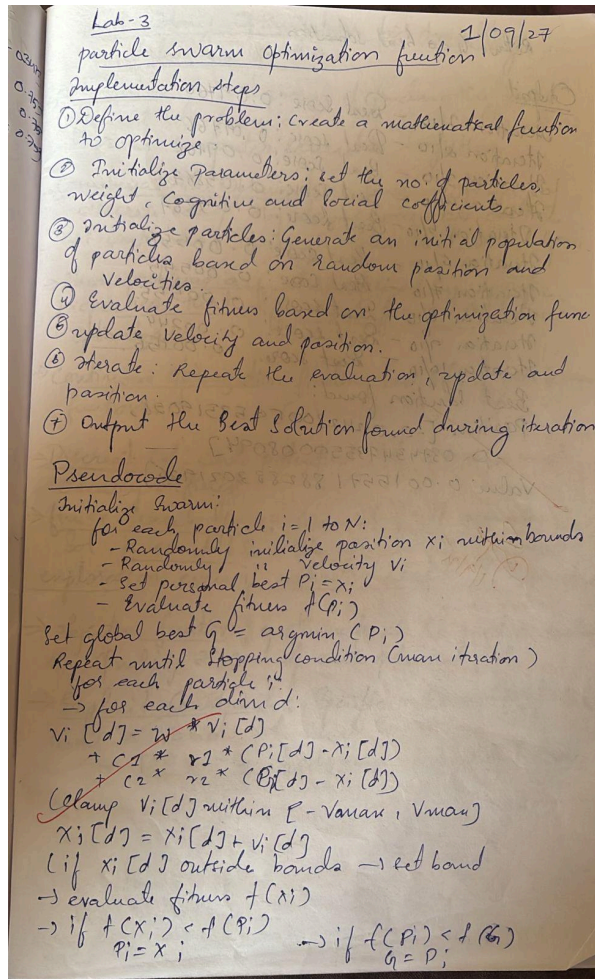 Lab-3
1/09/27
particle swarm optimization function
Implementation steps
① Define the problem: create a mathematical function
to optimize
② Initialize parameters: set the no. of particles,
weight, cognitive and social coefficients
③ Initialize particles: Generate an initial population
of particles based on random position and
velocities.
④ Evaluate fitness based on the optimization func
⑤ update velocity and position.
⑥ Iterate: Repeat the evaluation, update and
position.
⑦ Output the Best Solution found during iteration
Pseudocode
Initialize Swarm:
for each particle i=1 to N:
- Randomly initialize position xi within bounds
- Randomly " velocity vi
- Set personal best Pi = xi
- Evaluate fitness f(Pi)
Set global best G = argmin (Pi)
Repeat until stopping condition (max iteration)
for each particle i:
→ for each dim d:
Vi [d] = w * Vi [d]
+ C1 * r1 * (Pi[d] - Xi [d])
+ C2 * r2 * (G[d] - Xi [d])
Clamp Vi [d] within [-Vmax, Vmax]
Xi [d] = Xi [d] + Vi [d]
(if Xi [d] outside bounds → set bound
→ evaluate fitness f(Xi)
→ if f(Xi) < f(Pi)
Pi = Xi
→ if f(Pi) < f(G)
G = Pi